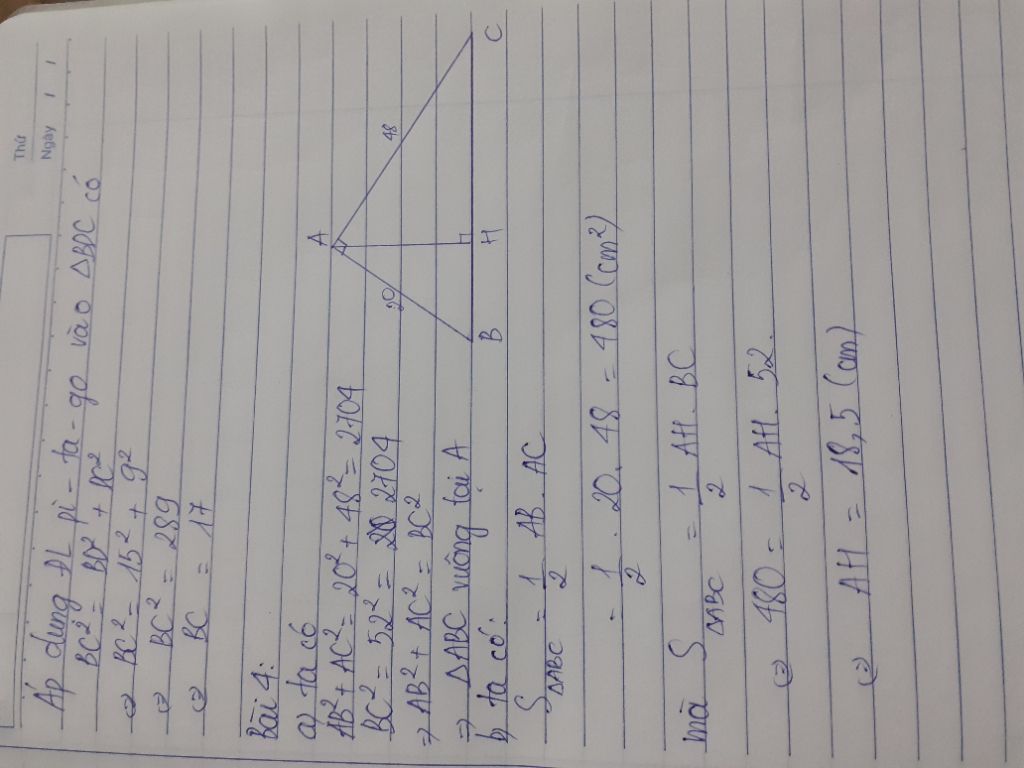 Thứ
Ngày / /
Áp dụng ĐL pi-ta-go vào ΔBDC có
BC² = BD² + DC²
⇔ BC² = 15² + 8²
⇔ BC² = 289
⇔ BC = 17
Bài 4:
a) ta có
AB² + AC² = 20² + 48² = 2704
BC² = 52² = 2704
⇒ AB² + AC² = BC²
⇒ ΔABC vuông tại A
A
20
48
B
H
C
b) ta có:
S ΔABC = 1/2 AB. AC
= 1/2 . 20. 48 = 480 (cm²)
mà S ΔABC = 1/2 AH. BC
⇔ 480 = 1/2 AH. 52.
⇔ AH = 18,5 (cm)